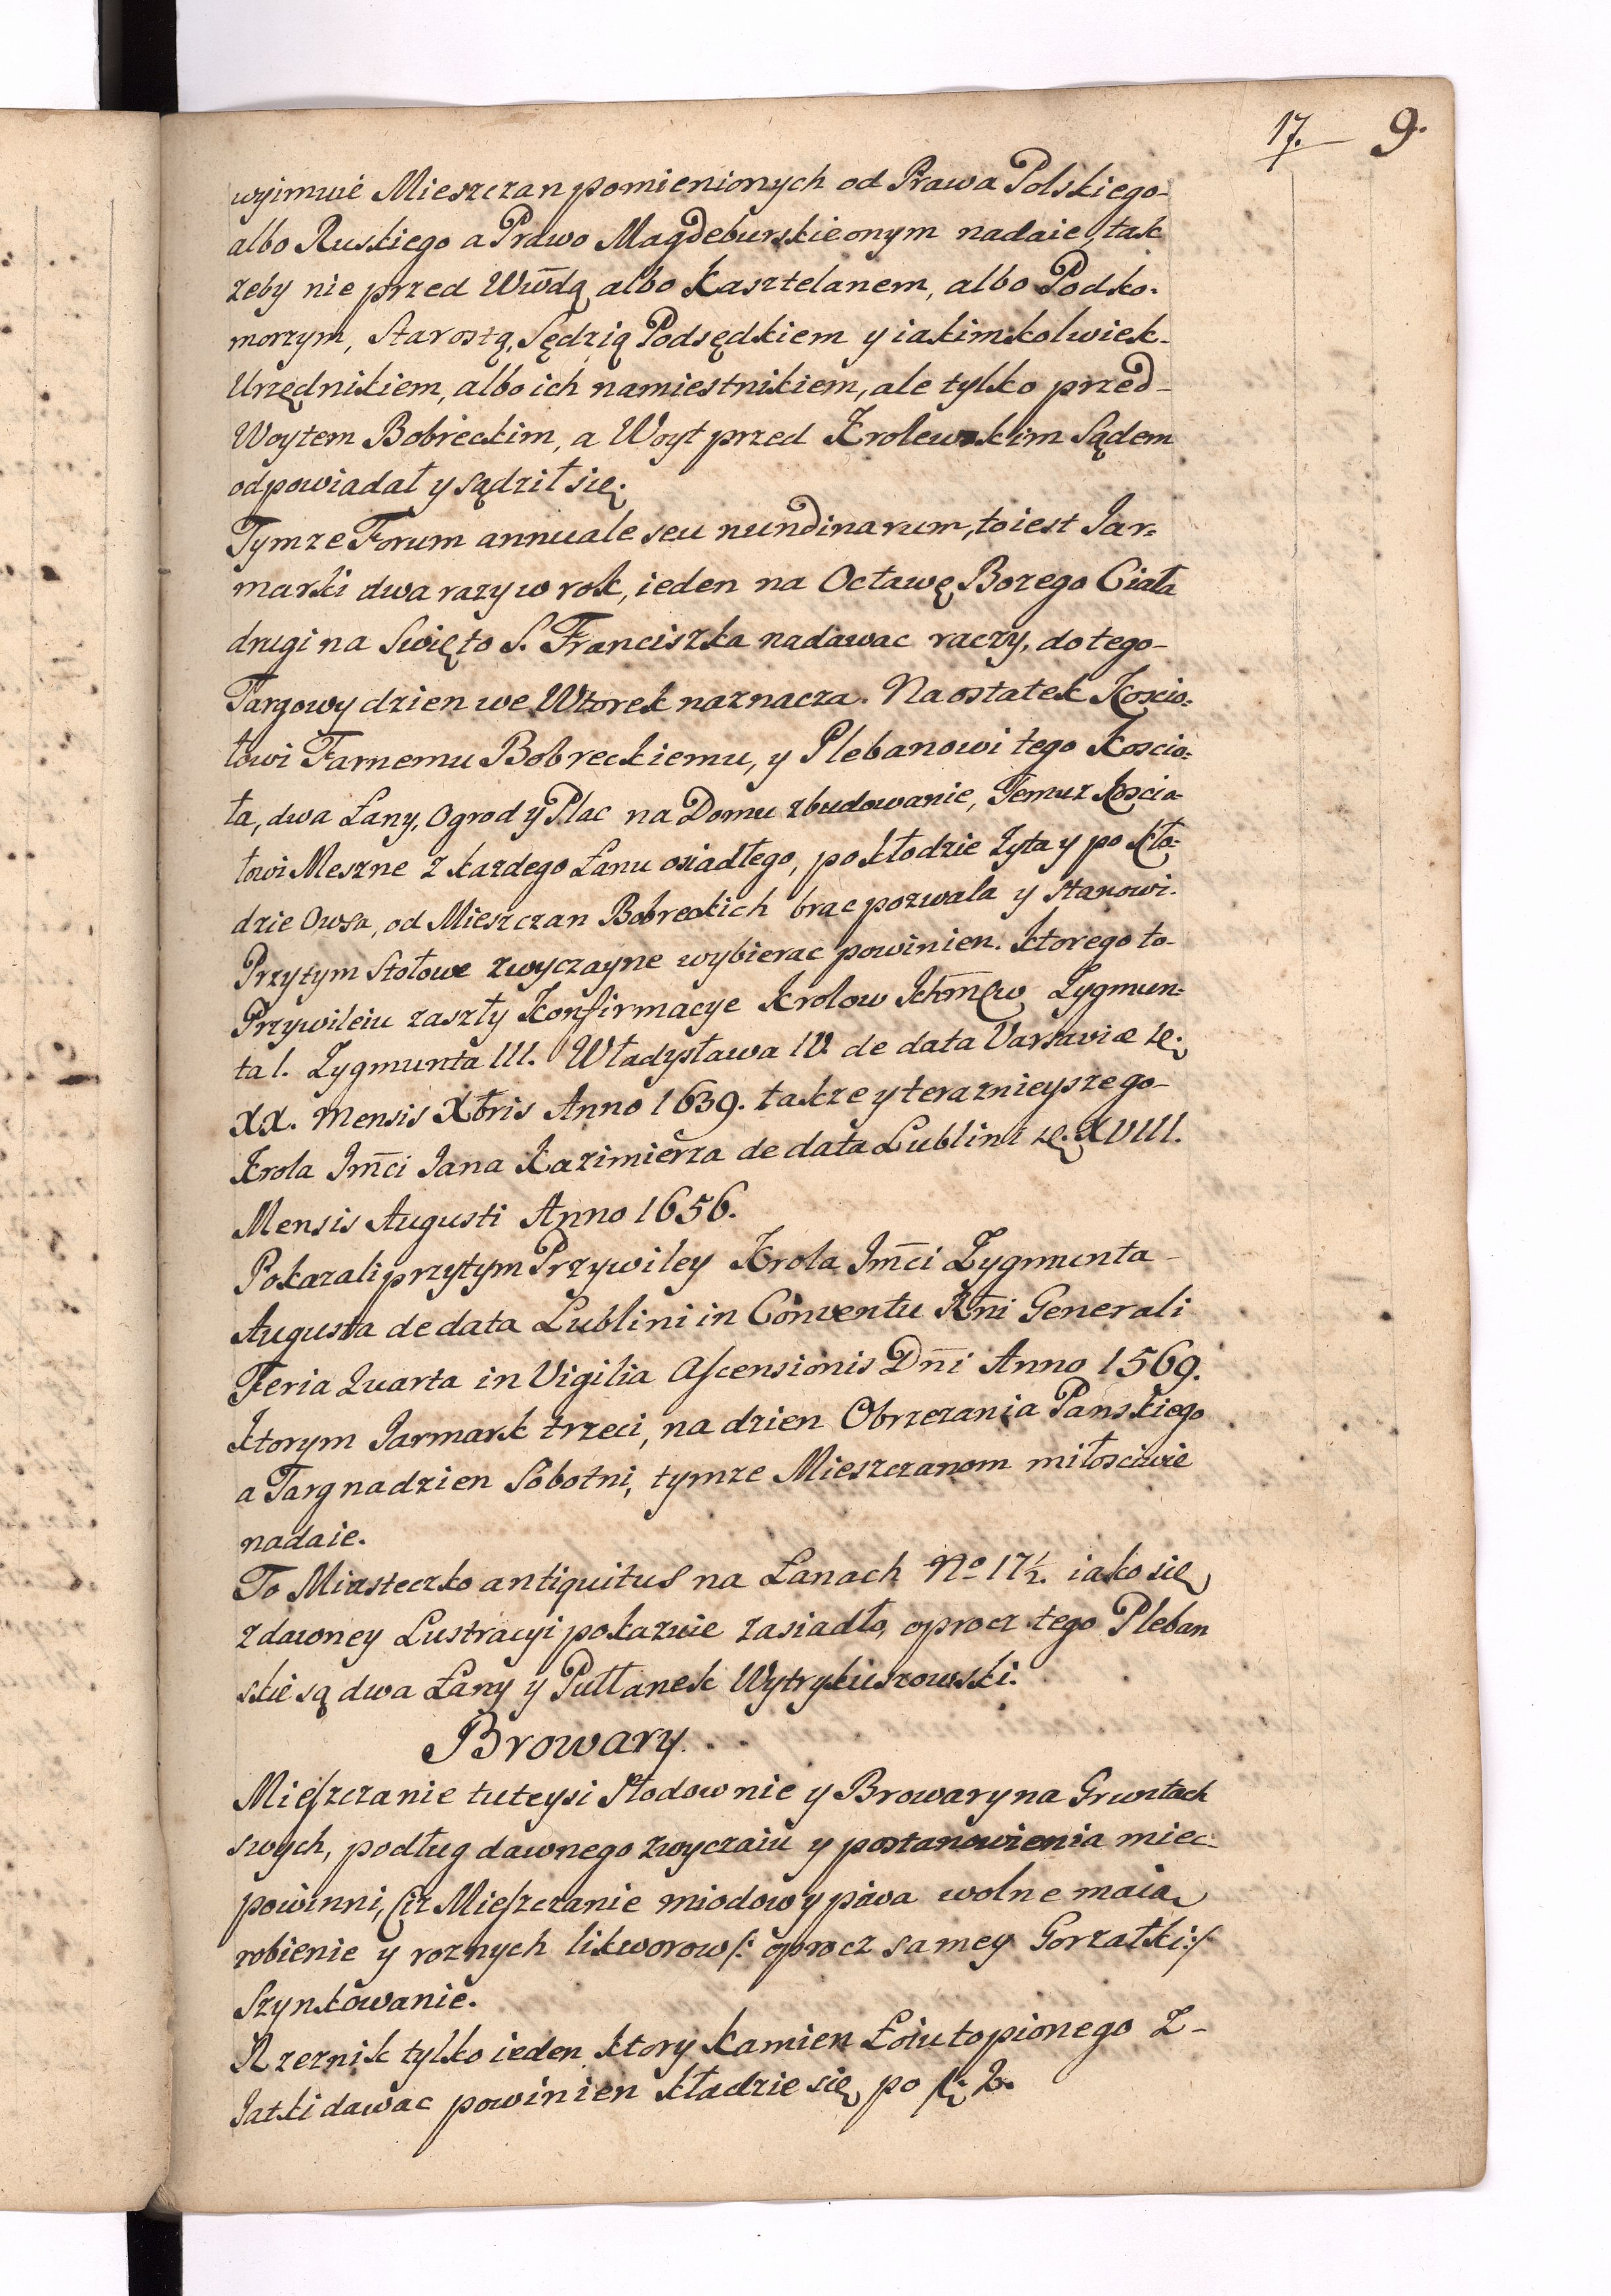 17. 9.
wyimuie Mieszczan pomienionych od Prawa Polskiego-
albo Ruskiego a Prawo Magdeburskie onym nadaie, tak
zeby nie przed Ww̄dą albo Kasztelanem, albo Podko-
morzym, Starostą, Sędzią Podsędkiem y iakimkolwiek-
Urzędnikiem, albo ich namiestnikiem, ale tylko przed-
Woytem Bobreckim, a Woyt przed Krolewskim Sądem
odpowiadał y sądził się.
Tymze Forum annuale seu nundinarum, to iest Jar=
marki dwa razy w rok, ieden na Octawę Bozego Ciała
drugi na Swięto S. Franciszka nadawac raczy, do tego-
Targowy dzien we Wtorek naznacza. Na ostatek Koscio=
łowi Farnemu Bobreckiemu, y Plebanowi tego Koscio=
ła, dwa Łany, Ogrod y Plac na Domu zbudowanie, Temuz Koscio-
łowi Meszne z kazdego Łanu osiadłego, po kłodzie Zyta y po kło=
dzie Owsa, od Mieszczan Bobreckich brac pozwala y stanowi.
Przytym Stołowe zwyczayne wybierac powinien. Ktorego to-
Przywileiu zaszły Konfirmacye Krolow Ichm̄ćw Zygmun=
ta I. Zygmunta III. Władysława IV. de data Varsaviæ
XX. Mensis Xbris Anno 1639. takze y teraznieyszego-
Krola Jm̄ci Jana Kazimierza de data Lublini XVIII.
Mensis Augusti Anno 1656.
Pokazali przytym Przywiley Krola Jm̄ci Zygmunta-
Augusta de data Lublini in Conventu Rtni Generali
Feria Quarta in Vigilia Ascensionis Dn̄i Anno 1569.
Ktorym Jarmark trzeci, na dzien Obrzezania Panskiego
a Targ na dzien Sobotni, tymze Mieszczanom miłosciwie
nadaie.
To Miasteczko antiquitus na Łanach No 17½. iako się
z dawney Lustracyi pokazuie zasiadło, oprocz tego Pleban
skie są dwa Łany y Pułłanek Wytrykuszowski.
Browary.
Mieszczanie tuteysi Słodownie y Browary na Gruntach
swych, podług dawnego zwyczaiu y postanowienia miec-
powinni, Ciz Mieszczanie miodow y piwa wolne maią
robienie y roznych likworow /: oprocz samey Gorzałki :/
Szynkowanie.
Rzeznik tylko ieden ktory kamien Łoiu topionego z-
Jatki dawac powinien kładzie się po